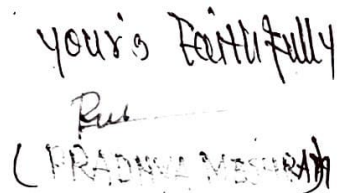 your's Faithfully
(PRADNYA MESHRAM)